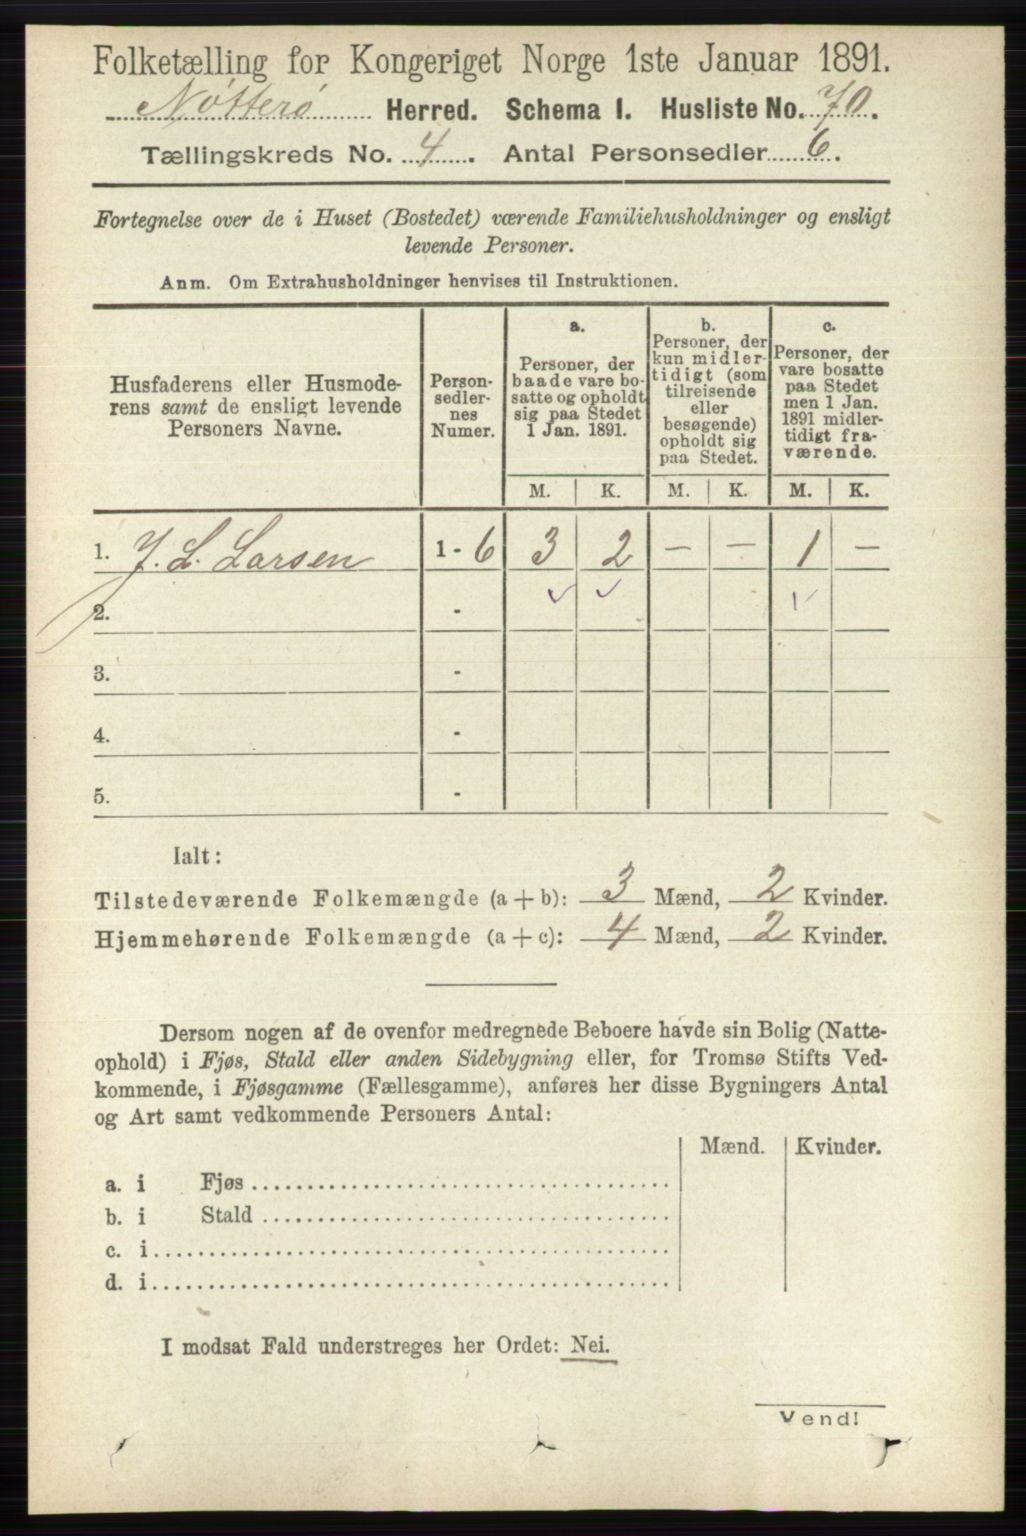 Folketælling for Kongeriget Norge 1ste Januar 1891.
Nøtterø Herred. Schema I. Husliste No. 70.
Tællingskreds No. 4. Antal Personsedler 6.
Fortegnelse over de i Huset (Bostedet) værende Familiehusholdninger og ensligt
levende Personer.
Anm. Om Extrahusholdninger henvises til Instruktionen.
Husfaderens eller Husmode-
rens samt de ensligt levende
Personers Navne.
Person-
sedler-
nes
Numer.
a.
Personer, der
baade vare bo-
satte og opholdt
sig paa Stedet
1 Jan. 1891.
b.
Personer, der
kun midler-
tidigt (som
tilreisende
eller
besøgende)
opholdt sig
paa Stedet.
c.
Personer, der
vare bosatte
paa Stedet
men 1 Jan.
1891 midler-
tidigt fra-
værende.
M. K. M. K. M. K.
1. J. L. Larsen 1-6 3 2 — — 1 —
2. -
3. -
4. -
5. -
Ialt:
Tilstedeværende Folkemængde (a + b): 3 Mænd, 2 Kvinder.
Hjemmehørende Folkemængde (a + c): 4 Mænd, 2 Kvinder.
Dersom nogen af de ovenfor medregnede Beboere havde sin Bolig (Natte-
ophold) i Fjøs, Stald eller anden Sidebygning eller, for Tromsø Stifts Ved-
kommende, i Fjøsgamme (Fællesgamme), anføres her disse Bygningers Antal
og Art samt vedkommende Personers Antal:
Mænd. Kvinder.
a. i Fjøs
b. i Stald
c. i
d. i
I modsat Fald understreges her Ordet: Nei.
Vend!